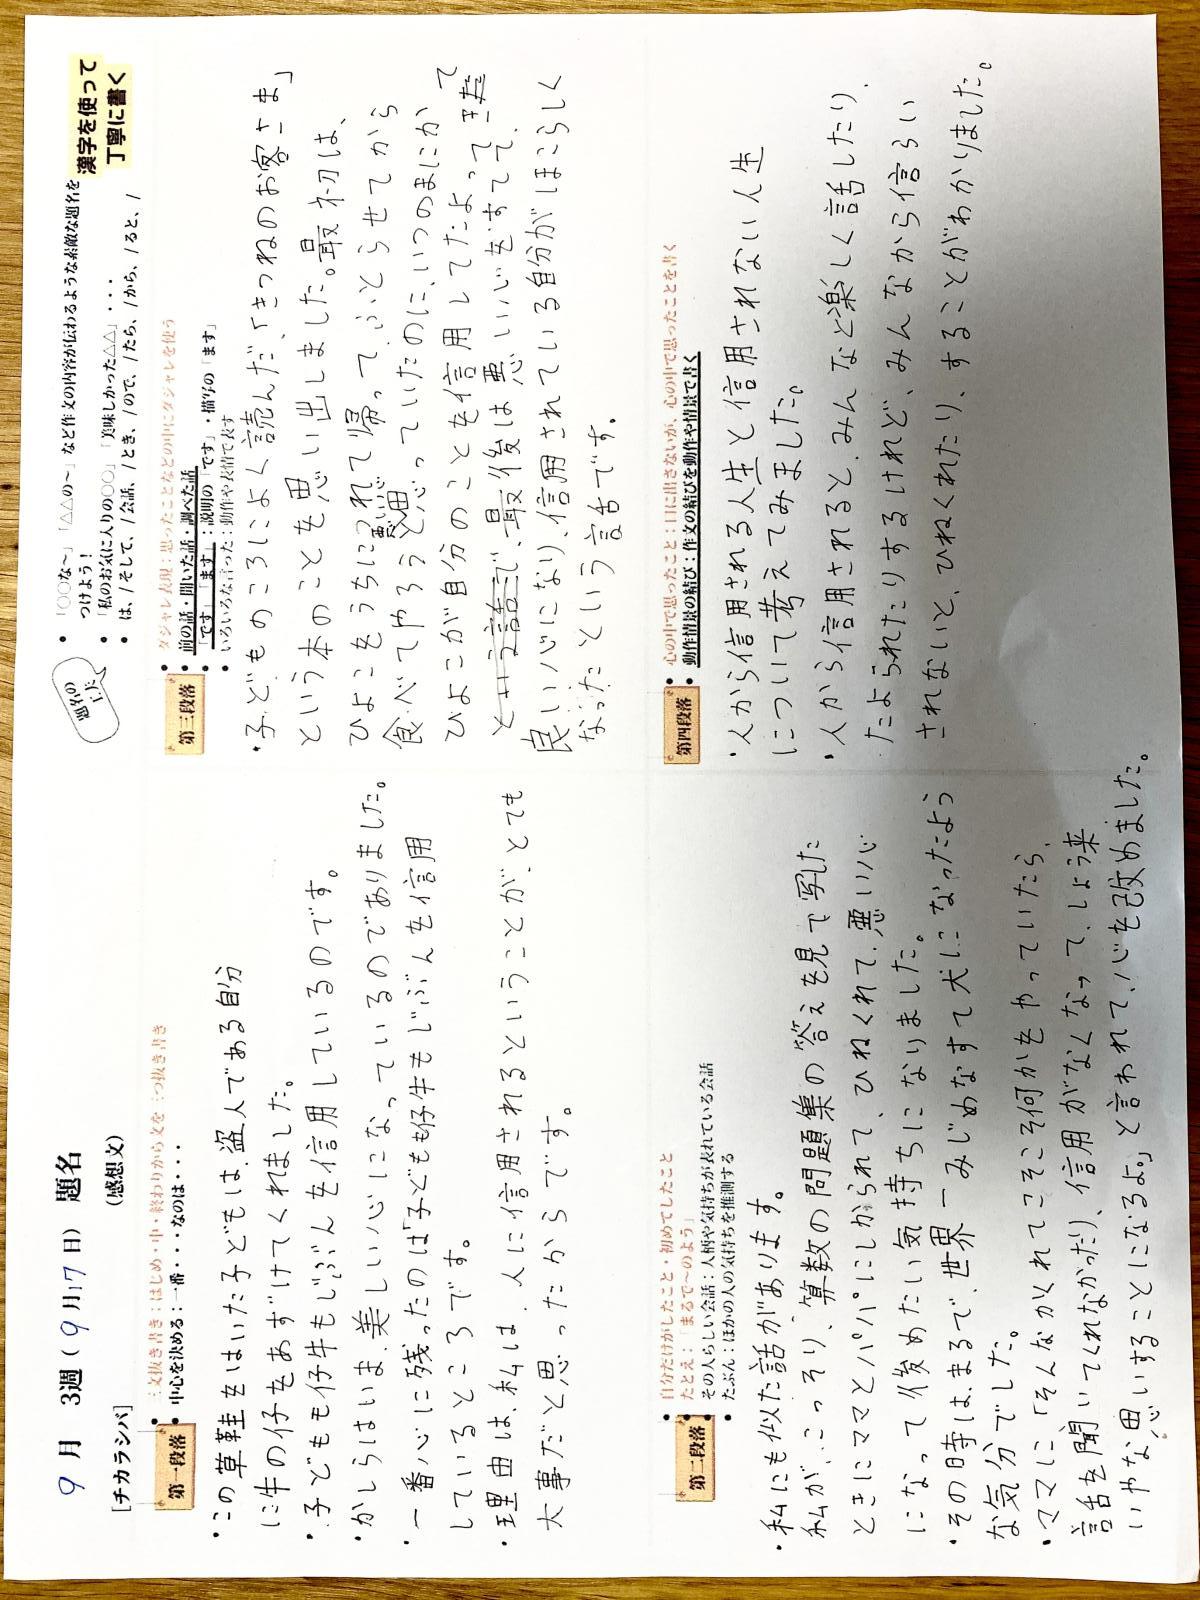 9月 3週(9月17日) 題名
[チカラシバ] (感想文)
・「○○な～」「△△の～」など作文の内容が伝わるような素敵な題名を
つけよう!
・「私のお気に入りの○○」「美味しかった△△」・・・
・は、/そして、/会話、/とき、/ので、/たら、/から、/ると、/
題名の工夫
漢字を使って
丁寧に書く
第一段落
・三文抜き書き:はじめ・中・終わりから文を三つ抜き書き
・中心を決める:一番・・・なのは・・・
・この草鞋をはいた子どもは、盗人である自分
に牛の仔をあずけてくれました。
・子どもも仔牛もじぶんを信用しているのです。
・かしらはいま、美しい心になっているのでありました。
・一番心に残ったのは「子どもも仔牛もじぶんを信用
しているところです。
理由は、私は、人に信用されるということが、とても
大事だと思ったからです。
第二段落
・自分だけがしたこと・初めてしたこと
・たとえ:「まるで～のよう」
・その人らしい会話:人柄や気持ちが表れている会話
・たぶん:ほかの人の気持ちを推測する
・私にも似た話があります。
私が、こっそり、算数の問題集の答えを見て写した
ときにママとパパにしかられて、ひねくれて、悪い心
になって後めたい気持ちになりました。
・その時は、まるで、世界一みじめなすて犬になったよう
な気分でした。
・ママに「そんなかくれてこそこそ何かをやっていたら、
話を聞いてくれなかったり、信用がなくなって、しょう来
いやな思いすることになるよ。」と言われて、心を改めました。
第三段落
・ダジャレ表現:思ったことなどの中にダジャレを使う
・前の話・聞いた話・調べた話
・「です」「ます」:説明の「です」・描写の「ます」
・いろいろな言った:動作や表情で表す
・子どものころによく読んだ、「きつねのお客さま」
という本のことを思い出しました。最初は、
ひよこをうちにつれて帰って、ふとらせてから
食べてやろうと思っていたのに、いつのまにか
ひよこが自分のことを信用してたよって
という話で、最後は悪い心をすてて、
良い心になり、信用されている自分がほこらしく
なったという話です。
第四段落
・心の中で思ったこと:口に出さないが、心の中で思ったことを書く
・動作情景の結び:作文の結びを動作や情景で書く
・人から信用される人生と信用されない人生
について考えてみました。
・人から信用されると、みんなと楽しく話したり、
たよられたりするけれど、みんなから信らい
されないと、ひねくれたり、することがわかりました。